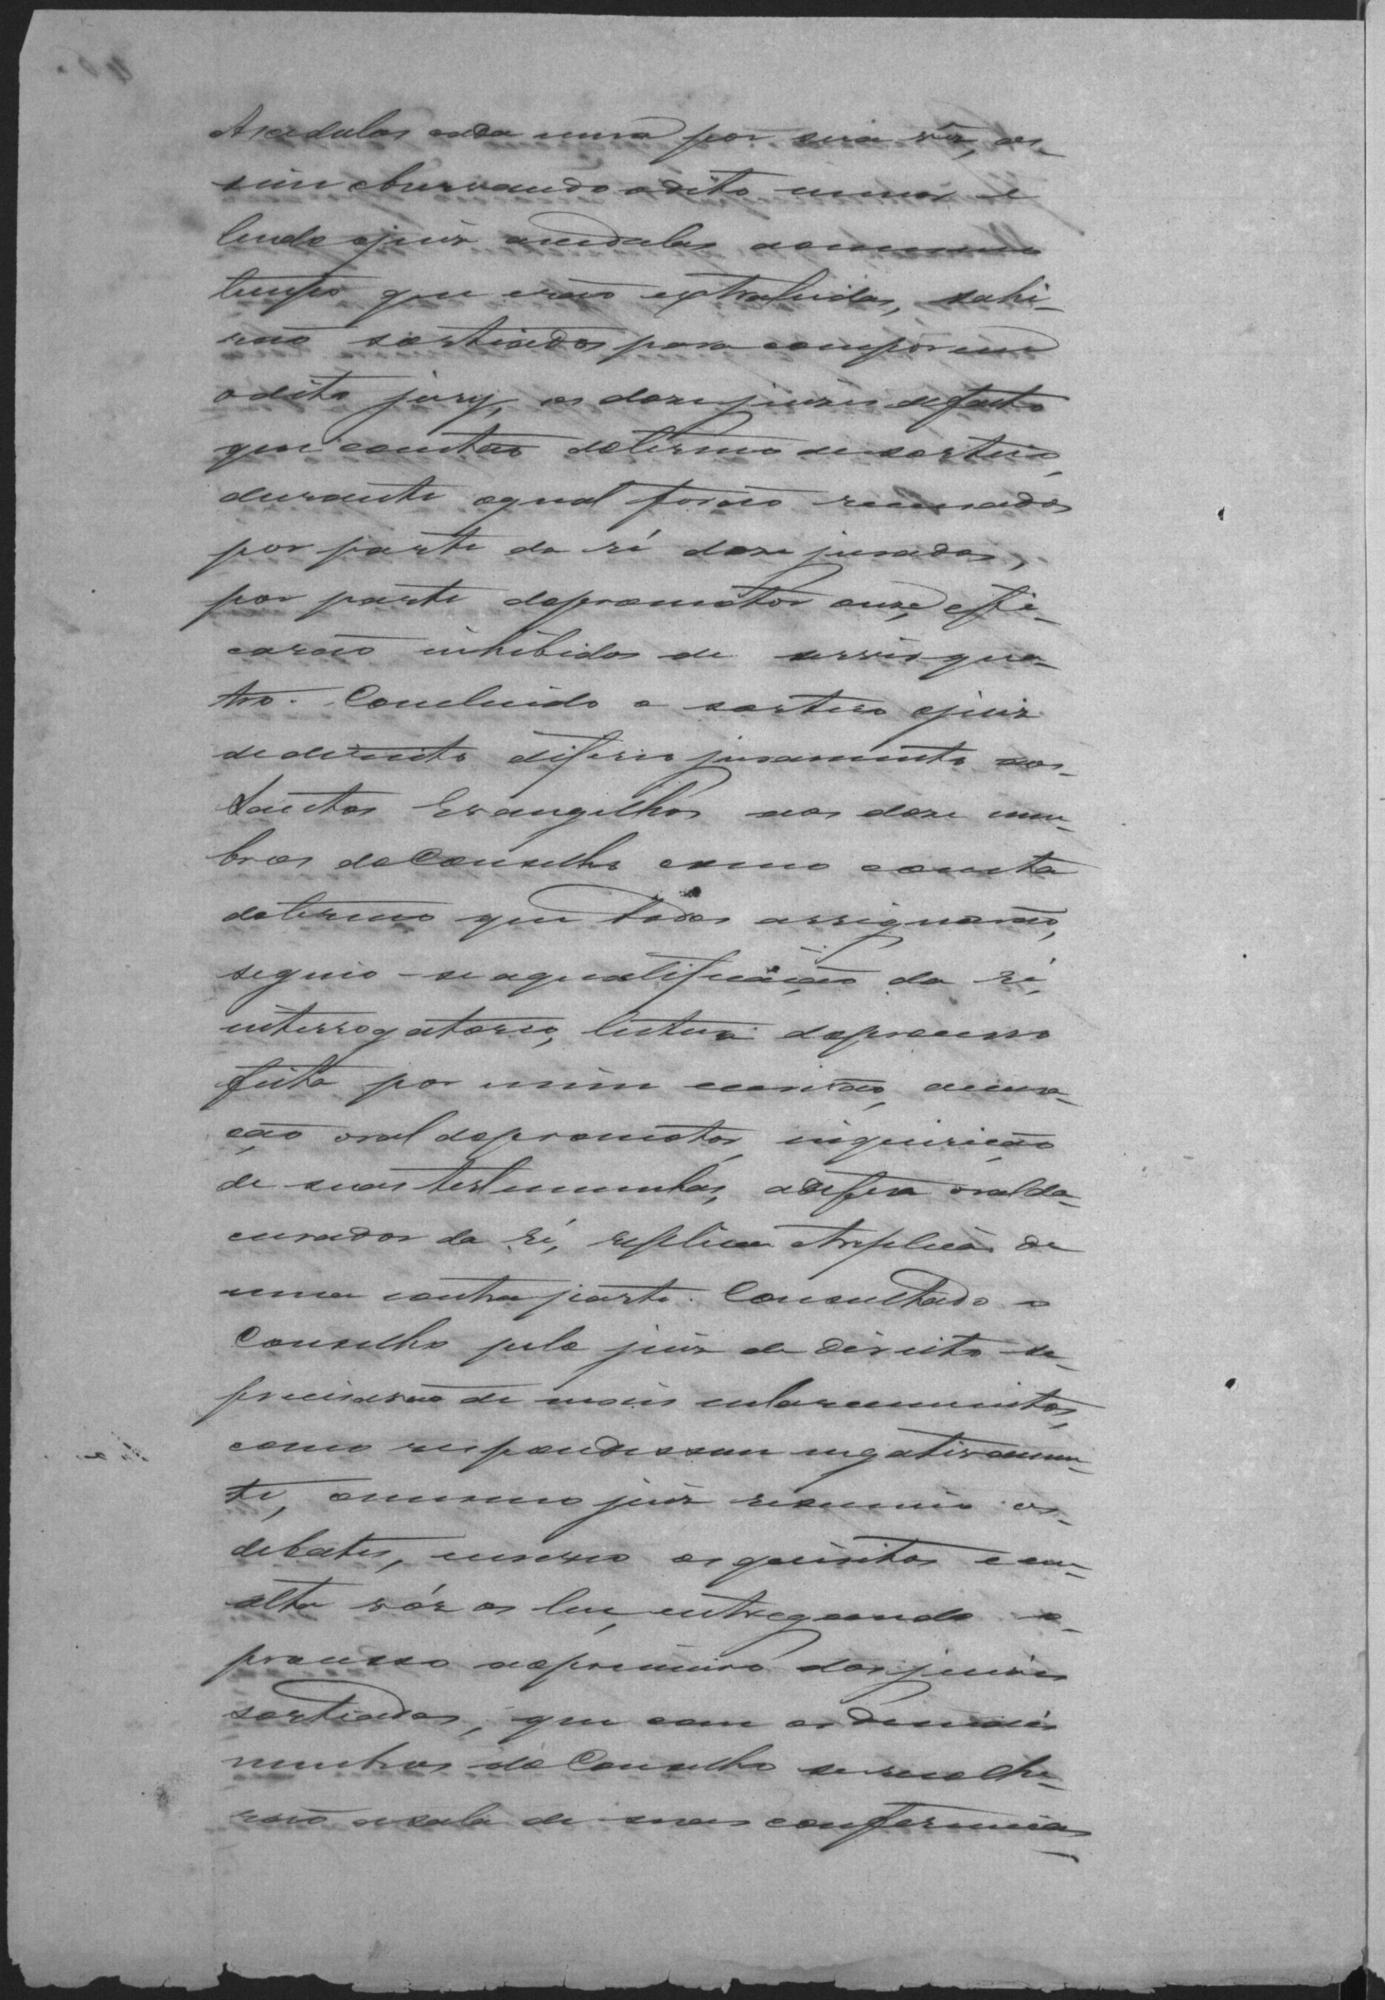 As cedulas cada uma por sua vêz, as-
sim observando o dito menor e
lendo o juiz as cedulas ao mesmo
tempo que erão extrahidas, sahi-
rão sorteados para comporem
o dito jury, os doze juizes de facto
que constão do termo de sorteio,
durante o qual forão recusados
por parte da ré doze jurados,
por parte do promotor onze, e fi-
carão inhibidos de servir qua-
tro. Concluido o sorteio o juiz
de direito diferio juramento aos
Santos Evangelhos aos doze mem-
bros do Conselho como consta
do termo que todos assignarão,
seguio-se a qualificação da ré,
interrogatorio, leitura do processo
feita por mim escrivão, accusa-
ção oral do promotor, inquirição
de suas testemunhas, a defesa oral do
curador da ré, replica e treplica de
uma e outra parte. Consultado o
Conselho pelo juiz de direito se
precisavão de mais esclarecimentos,
como respondessem negativamen-
te, o mesmo juiz resumio os
debates, escreveo os quesitos e em
alta vóz os leu, entregando o
processo ao primeiro dos juizes
sorteados, que com os demais
membros do Conselho se recolhe-
rão a sala de suas conferencias